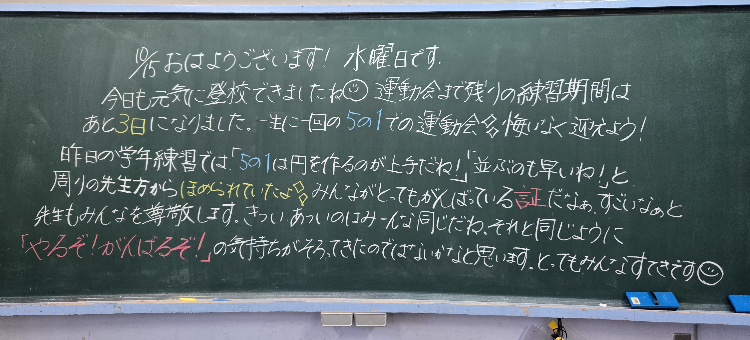 10/15 おはようございます! 水曜日です.
今日も元気に登校できましたね☺ 運動会まで残りの練習期間は
あと3日になりました。一生に一回の5の1での運動会を悔いなく迎えよう!
昨日の学年練習では、「5の1は円を作るのが上手だね!」「並ぶのも早いね!」と
周りの先生方からほめられていたよ みんながとってもがんばっている証だなぁ、すごいなぁと
先生もみんなを尊敬します。きつい、あついのはみーんな同じだね、それと同じように
「やるぞ!がんばるぞ!」の気持ちがそろってきたのではないかなと思います。とってもみんなすてきです☺